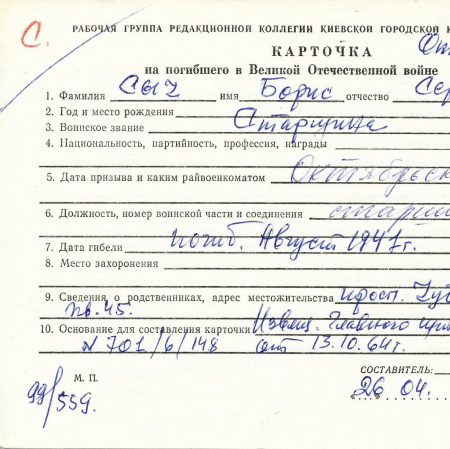 С.
РАБОЧАЯ ГРУППА РЕДАКЦИОННОЙ КОЛЛЕГИИ КИЕВСКОЙ ГОРОДСКОЙ К
КАРТОЧКА Ок
на погибшего в Великой Отечественной войне
1. Фамилия Сыч имя Борис отчество Сер
2. Год и место рождения
3. Воинское звание Старшина
4. Национальность, партийность, профессия, награды
5. Дата призыва и каким райвоенкоматом Октябрьск
6. Должность, номер воинской части и соединения старши
7. Дата гибели погиб. Август 1941 г.
8. Место захоронения
9. Сведения о родственниках, адрес местожительства просп.
кв. 45.
10. Основание для составления карточки Извещ. Главного
N 701/6/148 от 13.10.64г.
М. П.
СОСТАВИТЕЛЬ:
99/559.
26 04.